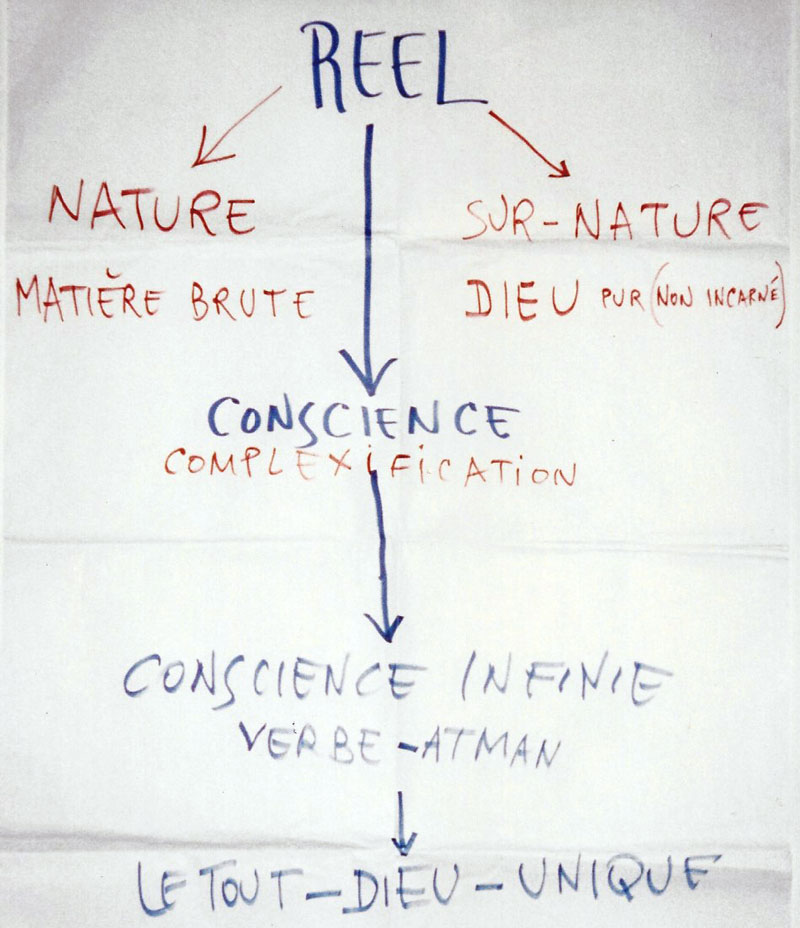 REEL
NATURE
SUR-NATURE
MATIÈRE BRUTE
DIEU PUR (NON INCARNÉ)
CONSCIENCE
COMPLEXIFICATION
CONSCIENCE INFINIE
VERBE-ATMAN
LE TOUT-DIEU-UNIQUE